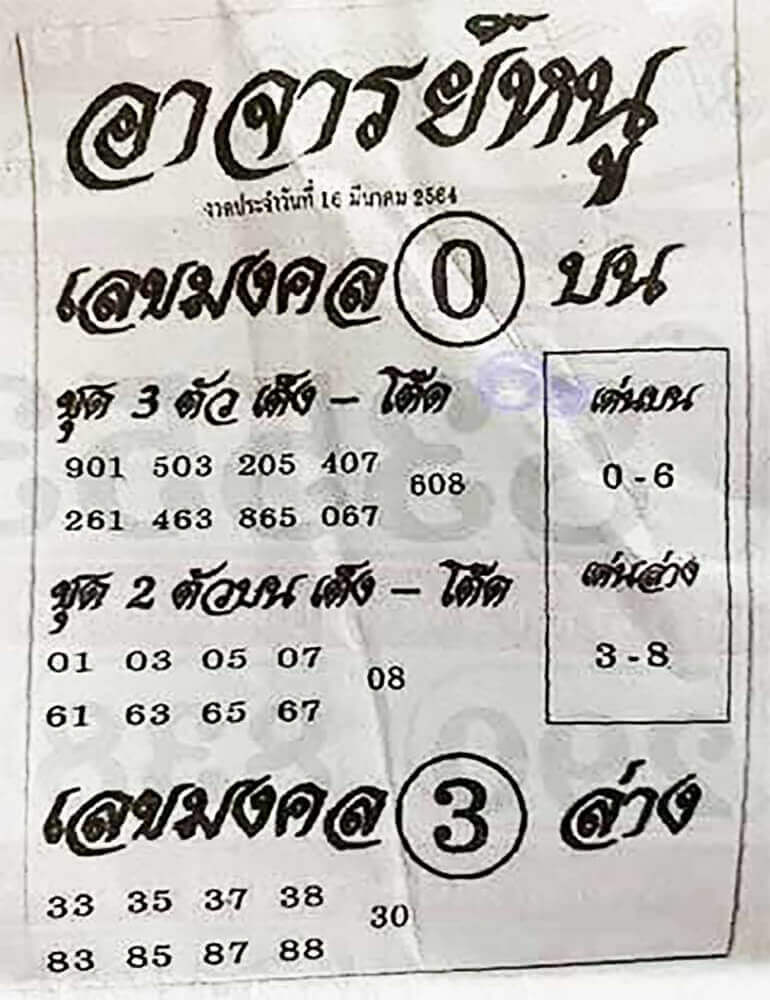 อาจารย์หนู
งวดประจำวันที่ 16 มีนาคม 2564
เลขมงคล 0 บน
ชุด 3 ตัว เต็ง - โต๊ด
901 503 205 407
608
261 463 865 067
เด่นบน
0 - 6
เด่นล่าง
3 - 8
ชุด 2 ตัวบน เต็ง - โต๊ด
01 03 05 07
08
61 63 65 67
เลขมงคล 3 ล่าง
33 35 37 38
30
83 85 87 88